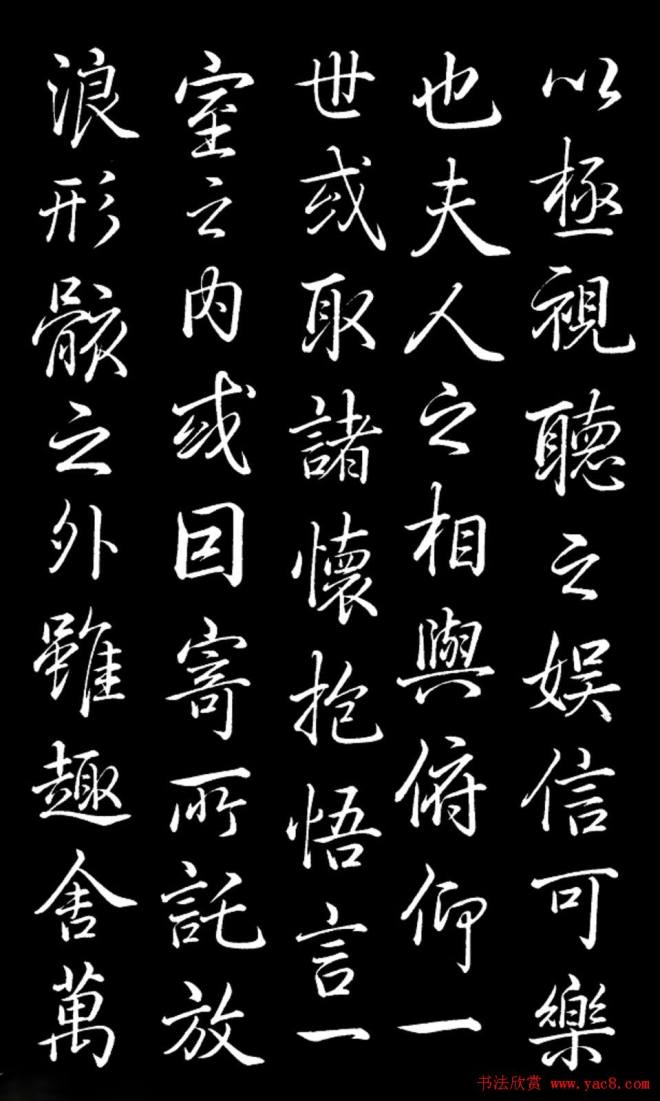 以極視聽之娱信可樂
也夫人之相與俯仰一
世或取諸懷抱悟言一
室之内或因寄所託放
浪形骸之外雖趣舍萬
书法欣赏 www.yac8.com